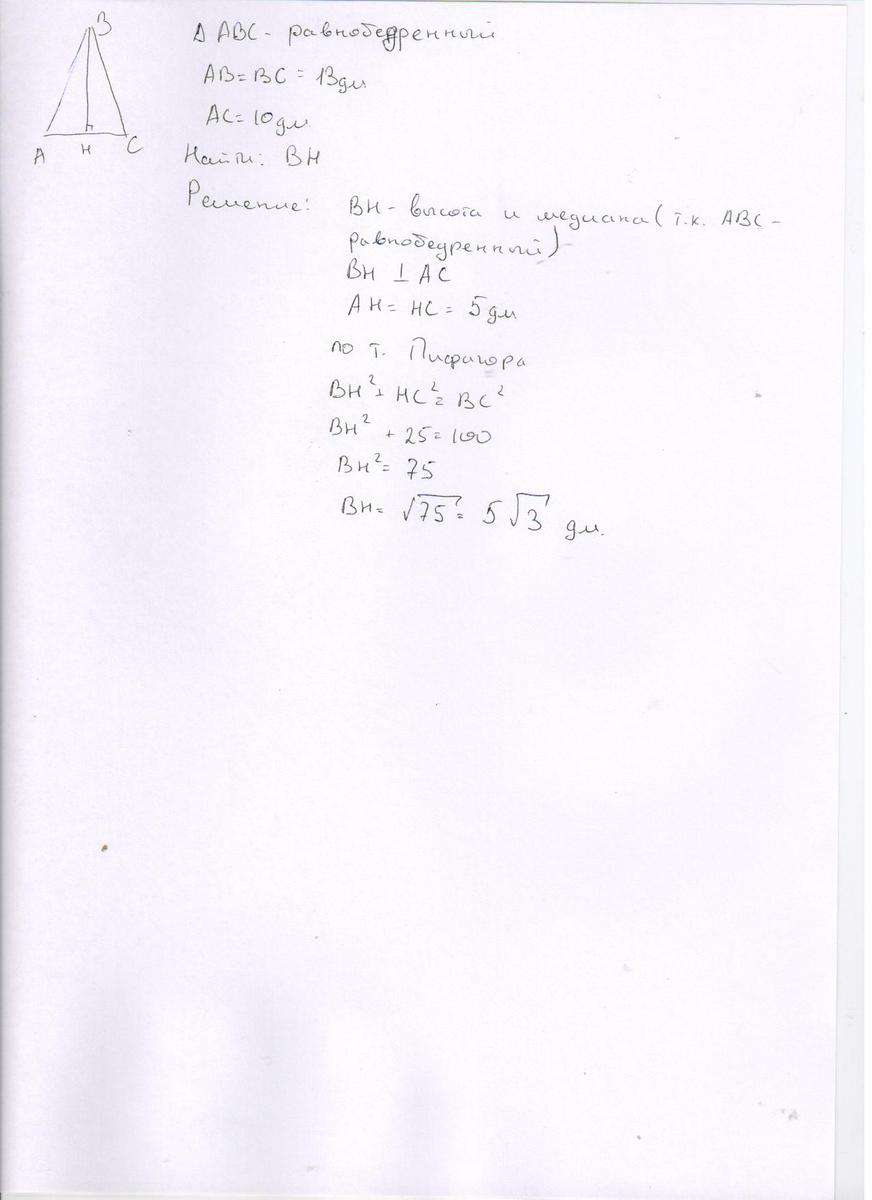 B
A H C
Δ ABC - равнобедренный
AB = BC = 13 дм
AC = 10 дм
Найти: BH
Решение: BH - высота и медиана (т.к. ABC -
равнобедренный)
BH ⊥ AC
AH = HC = 5 дм
по т. Пифагора
BH² + HC² = BC²
BH² + 25 = 100
BH² = 75
BH = √75 = 5√3 дм.